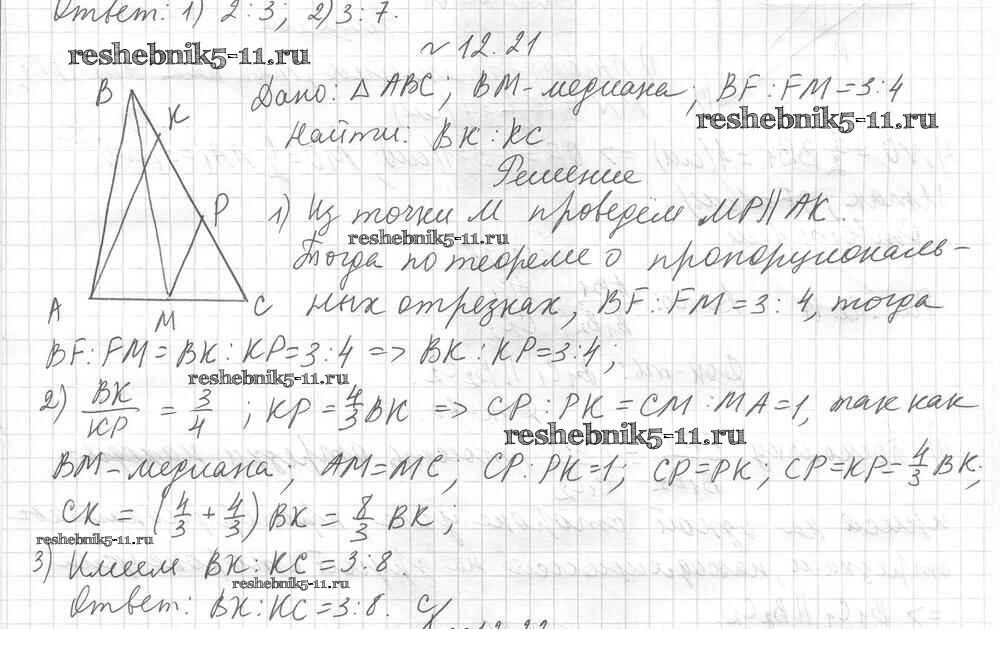 Ответ: 1) 2:3; 2) 3:7.
№ 12.21
reshebnik5-11.ru
B
K
P
A
M
C
Дано: △ABC; BM - медиана; BF:FM=3:4
reshebnik5-11.ru
Найти: BK:KC
Решение
1) Из точки M проведём MP∥AK.
reshebnik5-11.ru
Тогда по теореме о пропорциональ-
ных отрезках, BF:FM=3:4, тогда
BF:FM=BK:KP=3:4 => BK:KP=3:4;
reshebnik5-11.ru
2) BK/KP = 3/4; KP=4/3 BK => CP:PK=CM:MA=1, так как
reshebnik5-11.ru
BM - медиана; AM=MC; CP:PK=1; CP=PK; CP=KP=4/3 BK;
CK = (4/3 + 4/3) BK = 8/3 BK;
reshebnik5-11.ru
3) Имеем BK:KC=3:8.
reshebnik5-11.ru
Ответ: BK:KC=3:8.